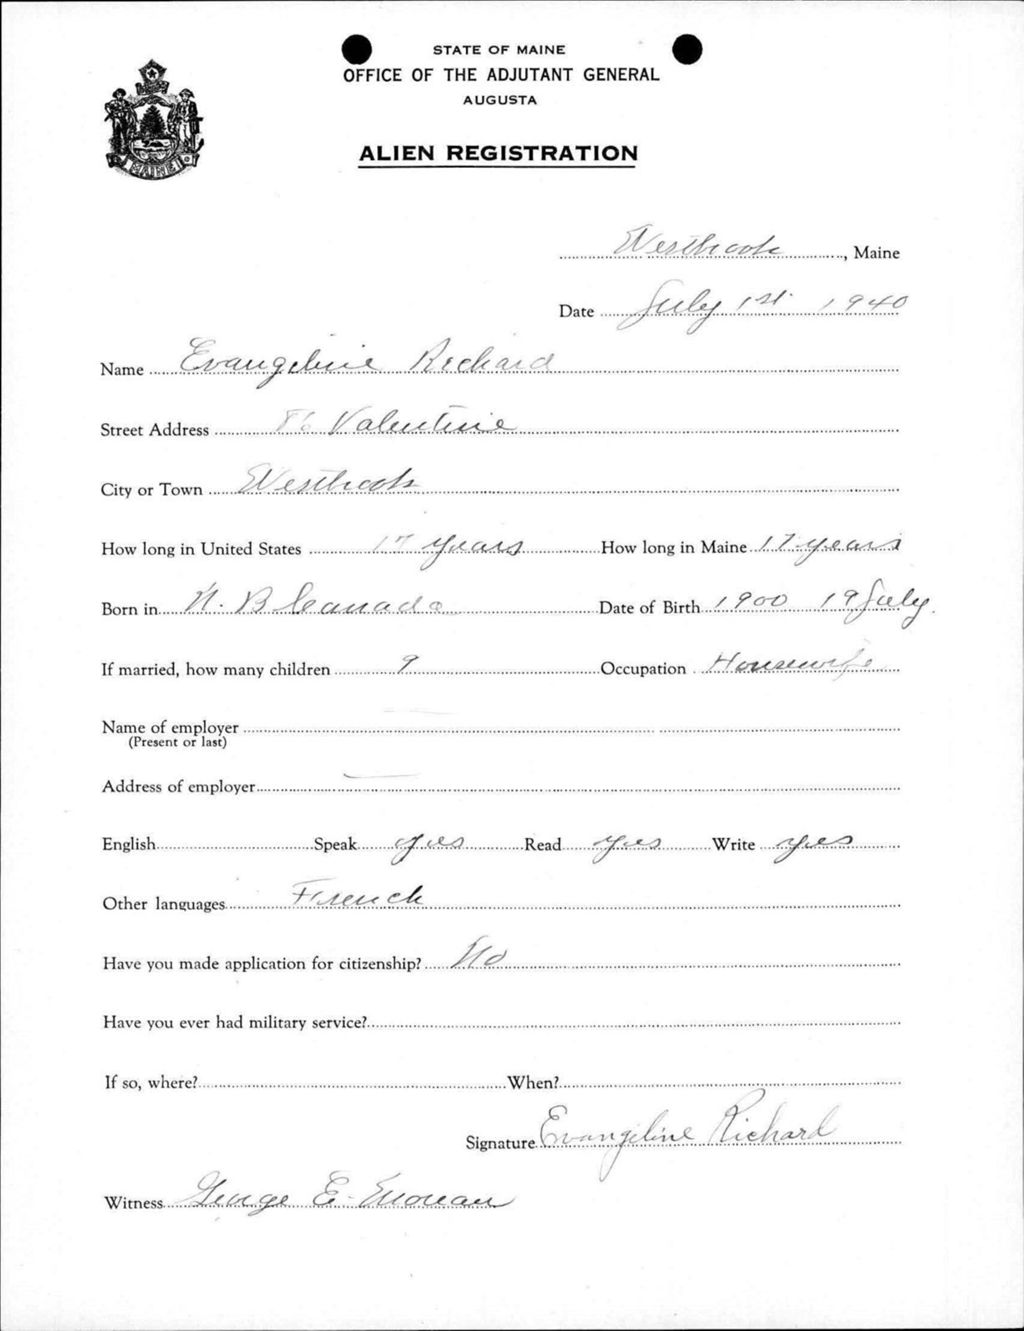 STATE OF MAINE
OFFICE OF THE ADJUTANT GENERAL
AUGUSTA
ALIEN REGISTRATION
MAINE
Westbrook, Maine
Date July 1st. 1940
Name Evangeline Richard
Street Address 86 Valentine
City or Town Westbrook
How long in United States 17 years How long in Maine 17 years
Born in N. B Canada Date of Birth 1900 19 July
If married, how many children 9 Occupation Housewife
Name of employer
(Present or last)
Address of employer
English Speak yes Read yes Write yes
Other languages French
Have you made application for citizenship? No
Have you ever had military service?
If so, where? When?
Signature Evangeline Richard
Witness George E.